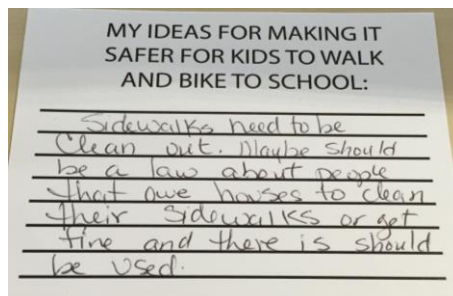 MY IDEAS FOR MAKING IT
SAFER FOR KIDS TO WALK
AND BIKE TO SCHOOL:
Sidewalks need to be
Clean out. Maybe should
be a law about people
that owe houses to clean
their sidewalks or get
fine and there is should
be used.